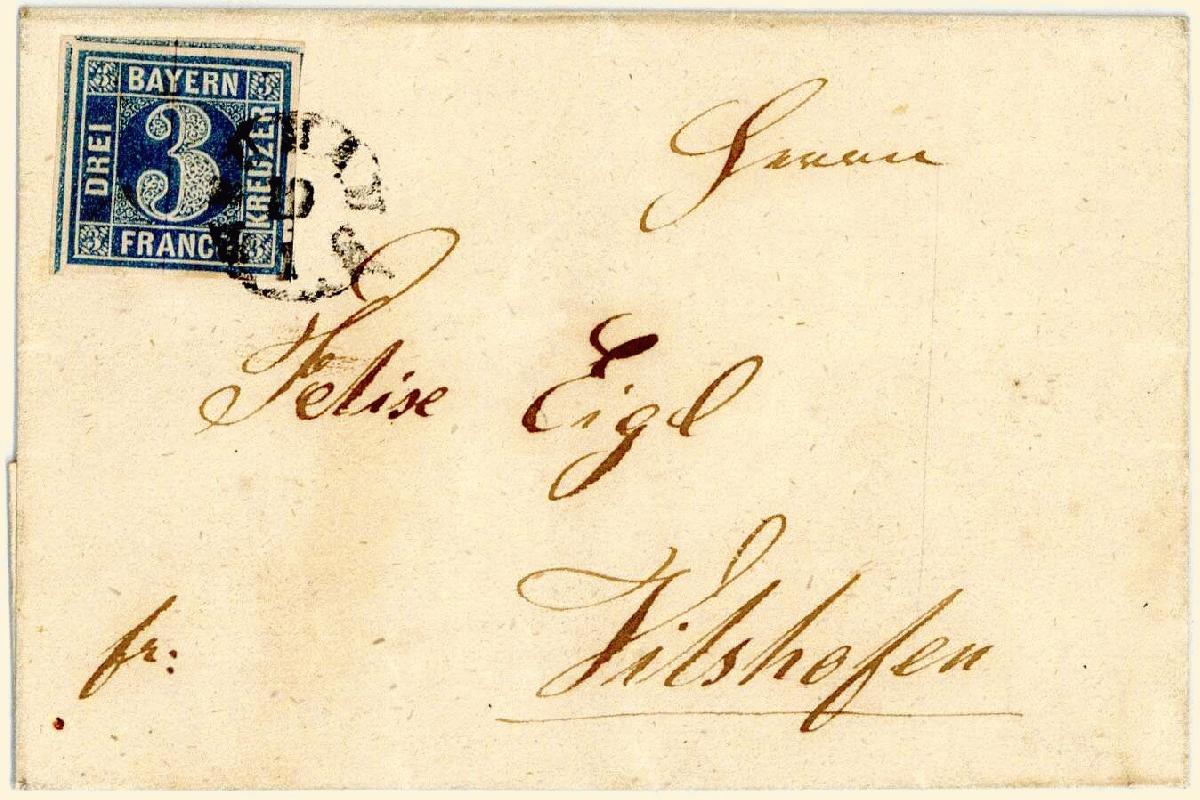 3 BAYERN 3
DREI 3 KREUZER
3 FRANCO 3
Herrn
Felise Eigl
Vilshofen
fr: